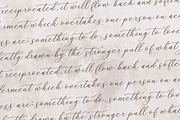 reciprocated, it will flow back and soften
erment which overtakes one person on a
ess are: something to do, something to love
ently drawn by the stronger pull of what
t reciprocated, it will flow back and softe
derment which overtakes one person on an
ess are: something to do, something to lov
ently drawn by the stronger pull of what